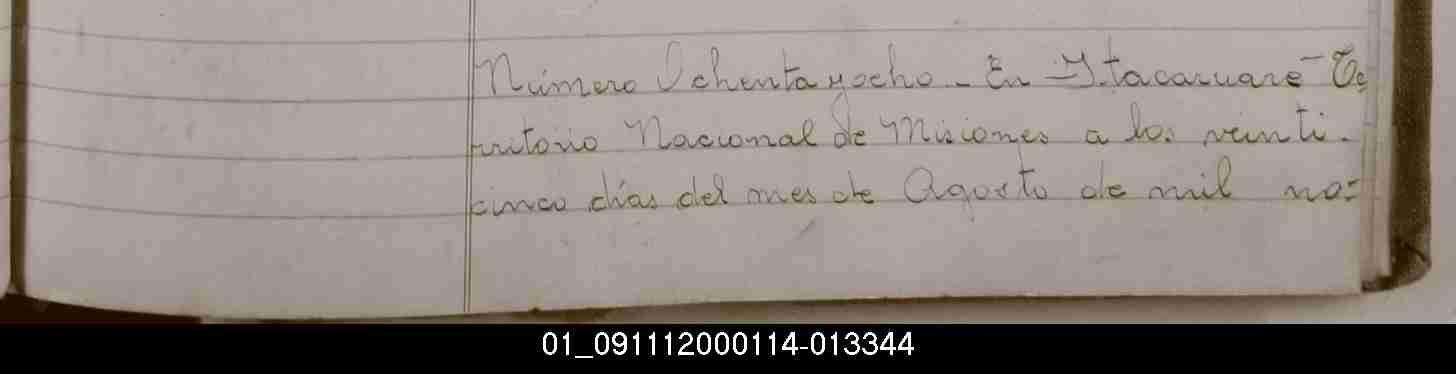 Número Ochenta y ocho - En Itacaruaré - Te
rritorio Nacional de Misiones a los veinti-
cinco días del mes de Agosto de mil no=
01_091112000114-013344